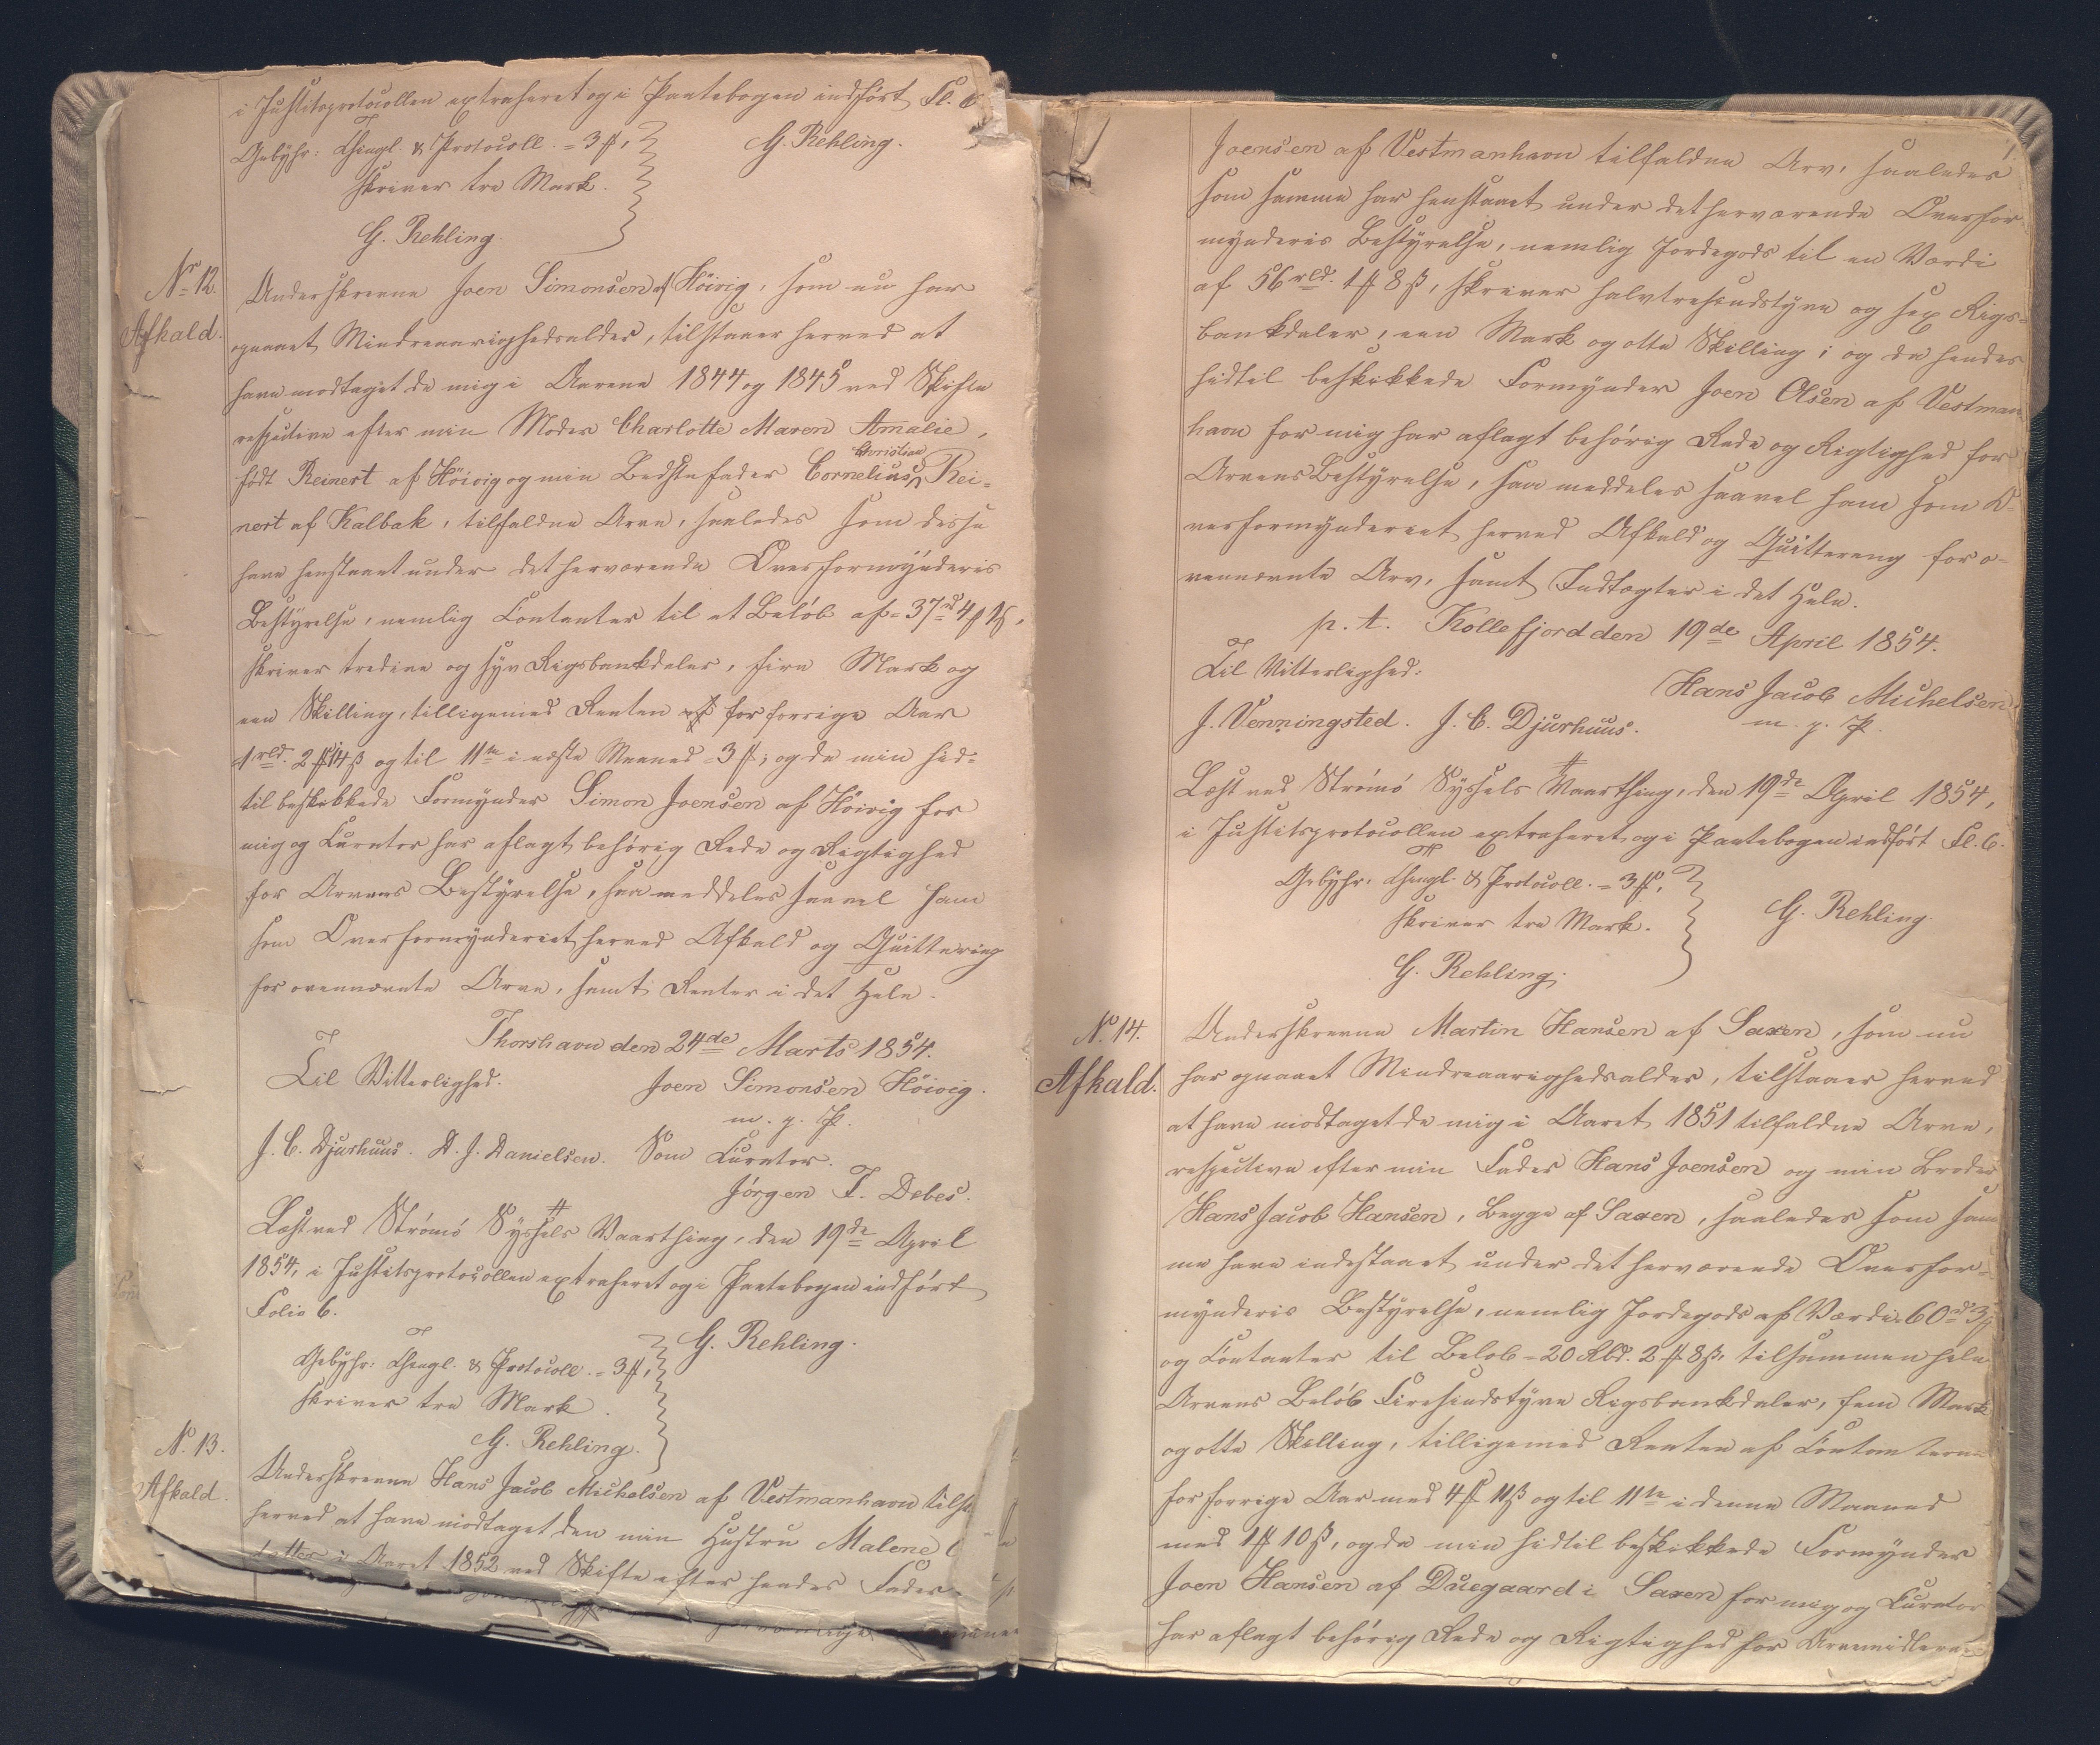 i Justitsprotocollen extraheret og i Pantebogen indført Fl. 6
Gebyhr: Thingl. & Protocoll. = 3 ℔,
skriver tre Mark.
G. Rehling.
G. Rehling.
No 12.
Afkald.
Underskrevne Joen Simonsen af Höivig, som nu har
opnaaet Mindreaarighedsalder, tilstaaer herved at
have modtaget de mig i Aarene 1844 og 1845 ved Skifte
respective efter min Moder Charlotte Maren Amalie,
født Reinert af Höivig og min Bedstefader Cornelius Christian Rei-
nert af Kalbak, tilfaldne Arve, saaledes som disse
have henstaaet under det herværende Overformynderies
Bestyrelse, nemlig Contanter til et Beløb af = 37 rd 4 ℔ 1 ß,
skriver tredive og syv Rigsbankdaler, fire Mark og
een Skilling, tilligemed Renten for forrige Aar
1 rbd. 2 ℔ 14 ß og til 11te i næste Maaned = 3 ℔; og da min hid-
til beskikkede Formynder Simon Joensen af Höivig for
mig og Curator har aflagt behörig Rede og Rigtighed
for Arvens Bestyrelse, saa meddeles saavel ham
som Overformynderiet herved Afkald og Quittering
for ovennævnte Arve, samt Renter i det Hele.
Thorshavn den 24de Marts 1854.
Til Vitterlighed.
Joen Simonsen Höivig.
m. p. P.
J. C. Djurhuus. D. J. Danielsen. Som Curator.
Jörgen F. Debes.
Læst ved Strömö Syssels Vaarthing, den 19de April
1854, i Justitsprotocollen extraheret og i Pantebogen indført
Folio 6.
G. Rehling.
Gebyhr: Thingl. & Protocoll. = 3 ℔,
skriver tre Mark.
G. Rehling.
No. 13.
Afkald.
Underskrevne Hans Jacob Michelsen af Vestmanhavn tilst
herved at have modtaget den min Hustru Malene
datter i Aaret 1852 ved Skifte efter hendes Fader
Joensen af Vestmanhavn tilfaldne Arv, saaledes
som samme har henstaaet under det herværende Overfor-
mynderies Bestyrelse, nemlig Jordegods til en Værdi
af 56 rbd. 1 ℔ 8 ß, skriver halvtresindstyve og sex Rigs-
bankdaler, een Mark og otte Skilling; og da hendes
hidtil beskikkede Formynder Joen Olsen af Vestman-
havn for mig har aflagt behörig Rede og Rigtighed for
Arvens Bestyrelse, saa meddeles saavel ham som O-
verformynderiet herved Afkald og Quittereng for o-
vennævnte Arv, samt Indtægter i det Hele.
p. t. Kollefjord den 19de April 1854.
Til Vitterlighed:
Hans Jacob Michelsen
m. p. P.
J. Venningsted. J. C. Djurhuus.
Læst ved Strömö Syssels Vaarthing, den 19de April 1854,
i Justitsprotocollen extraheret og i Pantebogen indført Fl. 6.
Gebyhr: Thingl. & Protocoll. = 3 ℔,
skriver tre Mark.
G. Rehling.
G. Rehling.
No. 14.
Afkald.
Underskrevne Martin Hansen af Saxen, som nu
har opnaaet Mindreaarighedsalder, tilstaaer herved
at have modtaget de mig i Aaret 1851 tilfaldne Arve,
respective efter min Fader Hans Joensen og min Broder
Hans Jacob Hansen, begge af Saxen, saaledes som sam-
me have indestaaet under det herværende Overfor-
mynderies Bestyrelse, nemlig Jordegods af Værdi 60 rd 3 ℔
og Contanter til Beløb = 20 Rbd. 2 ℔ 8 ß, tilsammen hele
Arvens Beløb Firesindstyve Rigsbankdaler, fem Mark
og otte Skilling, tilligemed Renten af Contanterne
for forrige Aar med 4 ℔ 11 ß og til 11te i denne Maaned
med 1 ℔ 10 ß, og da min hidtil beskikkede Formynder
Joen Hansen af Duegaard i Saxen for mig og Curator
har aflagt behörig Rede og Rigtighed for Arvemidlernes